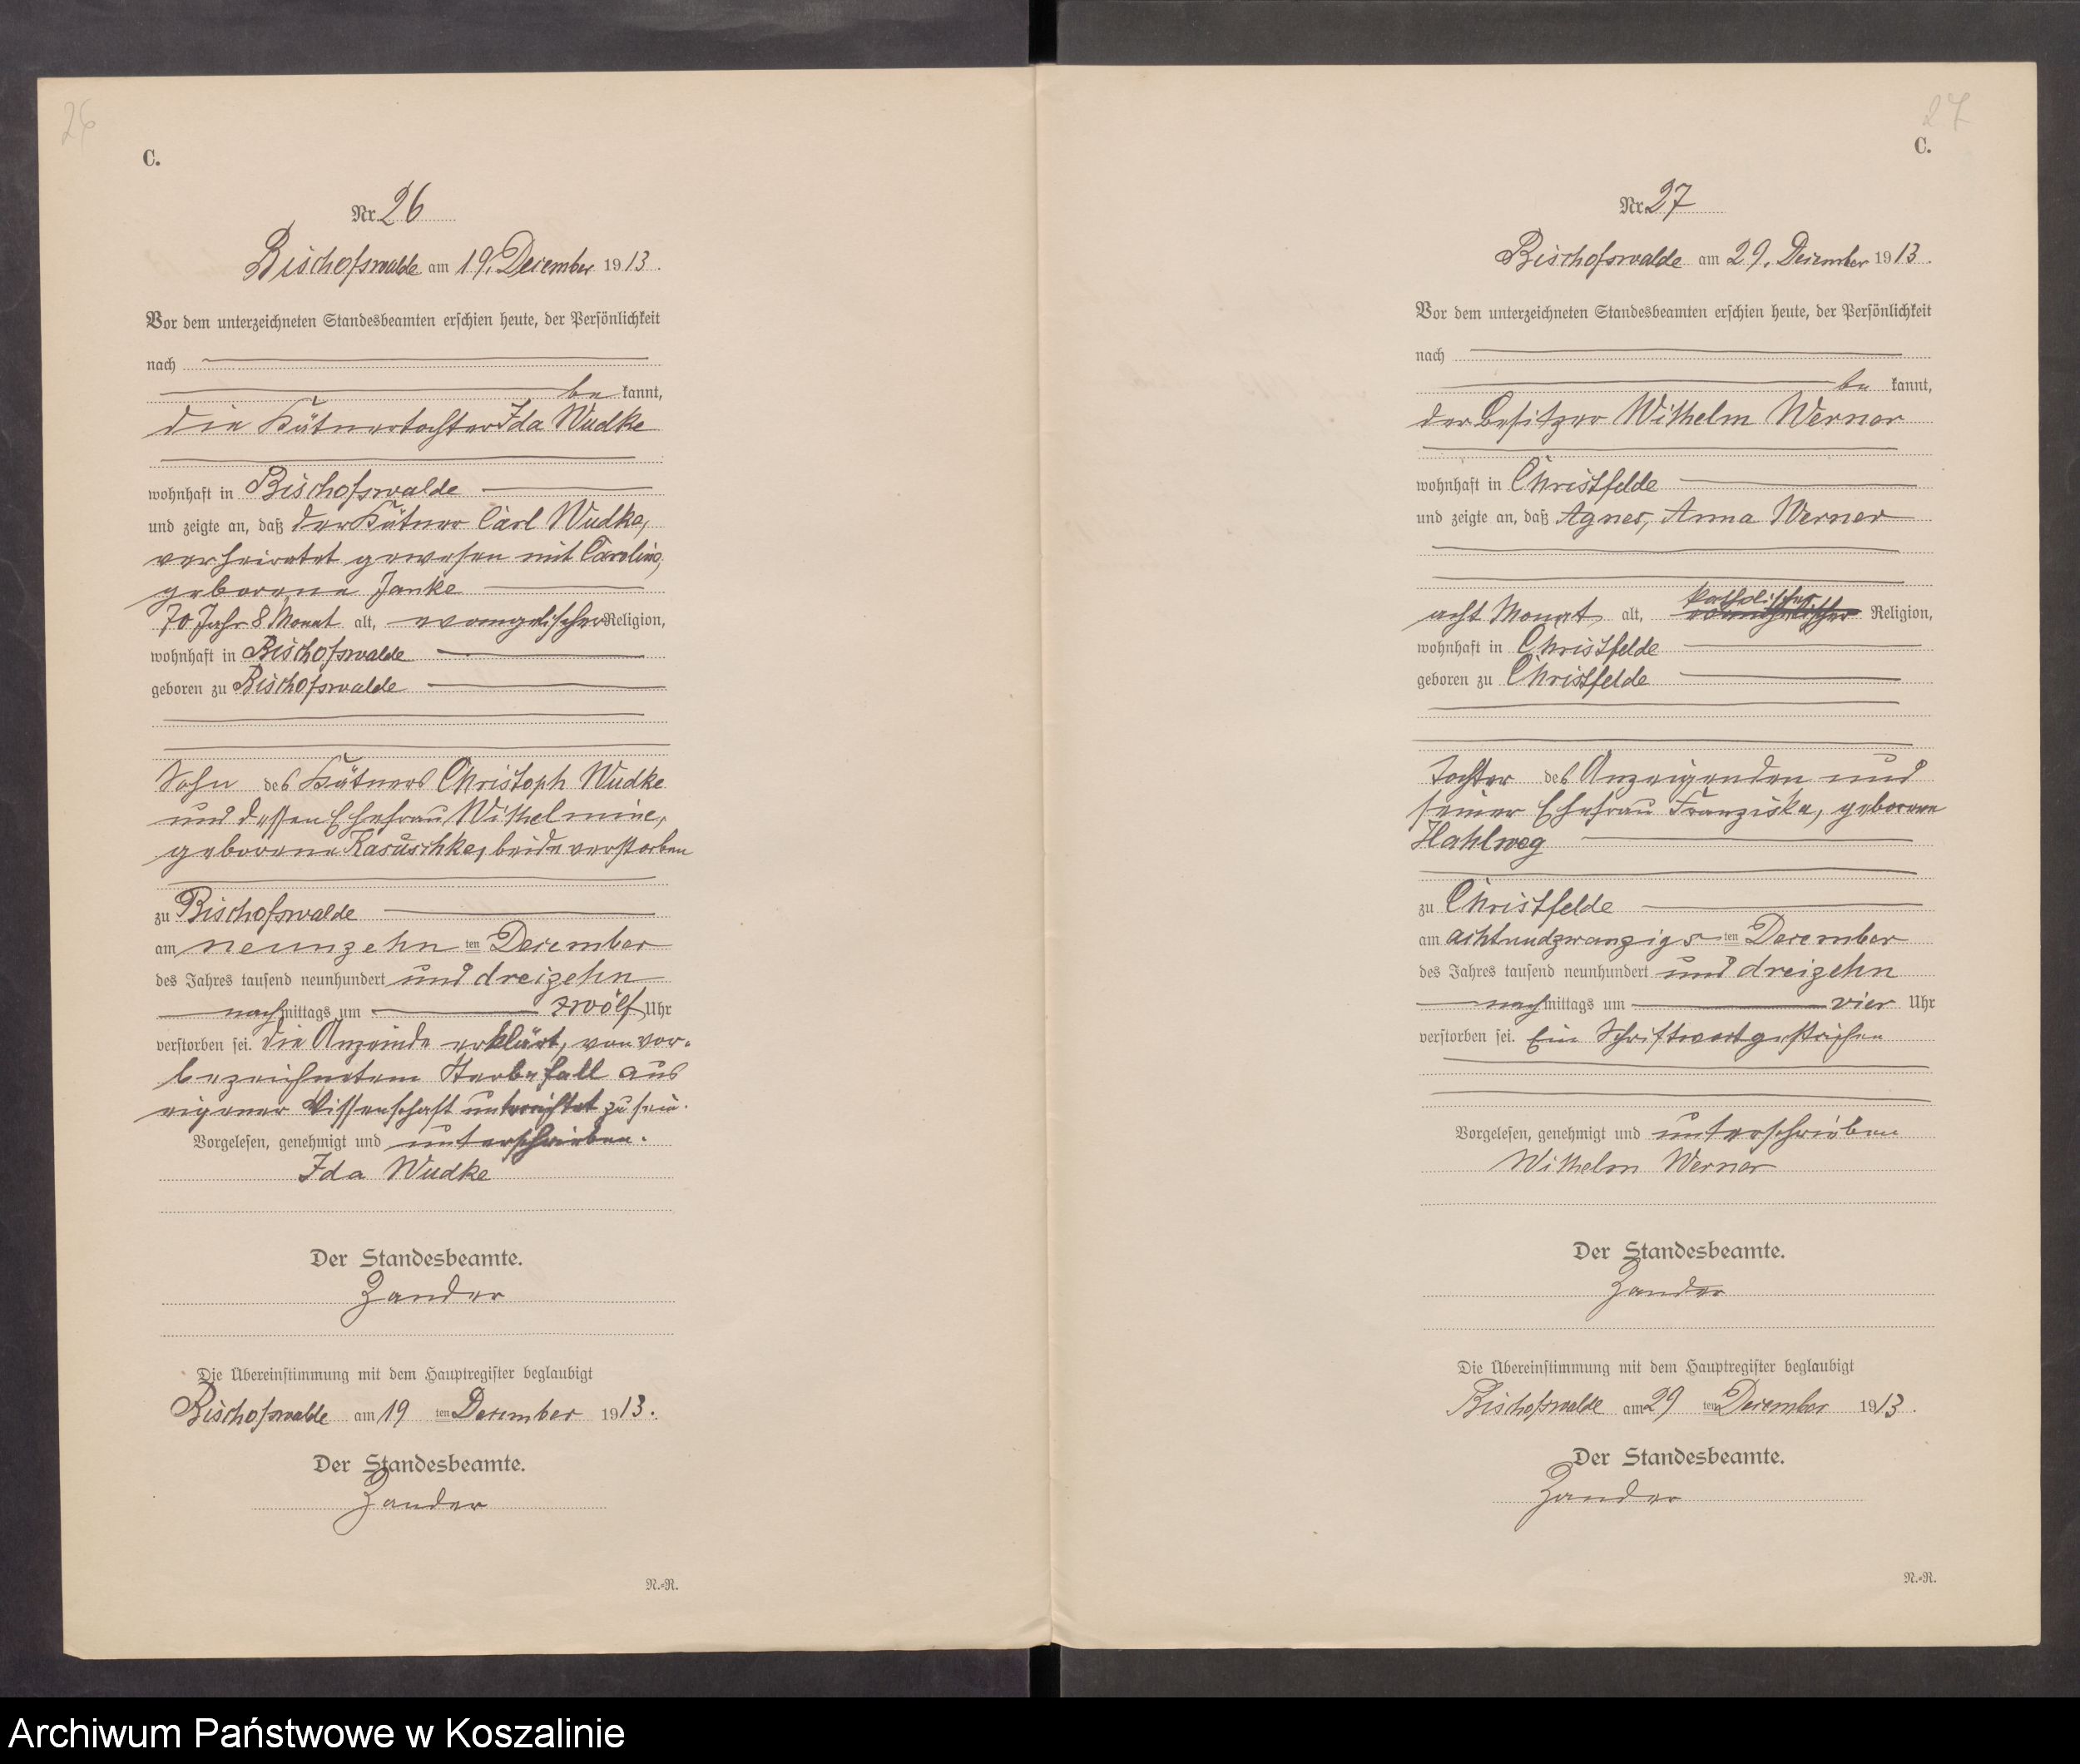 26
C.
Nr. 26
Bischofswalde am 19. Dezember 1913.
Vor dem unterzeichneten Standesbeamten erschien heute, der Persönlichkeit
nach
be kannt,
die Kätnertochter Ida Wudke
wohnhaft in Bischofswalde
und zeigte an, daß der Kätner Carl Wudke,
verheiratet gewesen mit Caroline,
geborene Janke
70 Jahr 8 Monat alt, evangelischer Religion,
wohnhaft in Bischofswalde
geboren zu Bischofswalde
Sohn des Kätners Christoph Wudke
und dessen Ehefrau, Wilhelmine,
geborene Kasuschke, beide verstorben
zu Bischofswalde
am neunzehn ten Dezember
des Jahres tausend neunhundert und dreizehn
nach mittags um zwölf Uhr
verstorben sei. Die Anzeinde erklärt, von vor-
bezeichnetem Sterbefall aus
eigener Wissenschaft unterrichtet zu sein.
Vorgelesen, genehmigt und unterschrieben.
Ida Wudke
Der Standesbeamte.
Zander
Die Übereinstimmung mit dem Hauptregister beglaubigt
Bischofswalde am 19 ten Dezember 1913.
Der Standesbeamte.
Zander
N.-R.
27
C.
Nr. 27
Bischofswalde am 29. Dezember 1913.
Vor dem unterzeichneten Standesbeamten erschien heute, der Persönlichkeit
nach
be kannt,
der Besitzer Wilhelm Werner
wohnhaft in Christfelde
und zeigte an, daß Agnes, Anna Werner
katholischer
acht Monat alt, evangelischer Religion,
wohnhaft in Christfelde
geboren zu Christfelde
Tochter des Anzeigenden und
seiner Ehefrau Franziska, geborene
Hahlweg
zu Christfelde
am achtundzwanzigs ten Dezember
des Jahres tausend neunhundert und dreizehn
nach mittags um vier Uhr
verstorben sei. Ein Schriftwort gestrichen
Vorgelesen, genehmigt und unterschrieben
Wilhelm Werner
Der Standesbeamte.
Zander
Die Übereinstimmung mit dem Hauptregister beglaubigt
Bischofswalde am 29 ten Dezember 1913.
Der Standesbeamte.
Zander
N.-R.
Archiwum Państwowe w Koszalinie